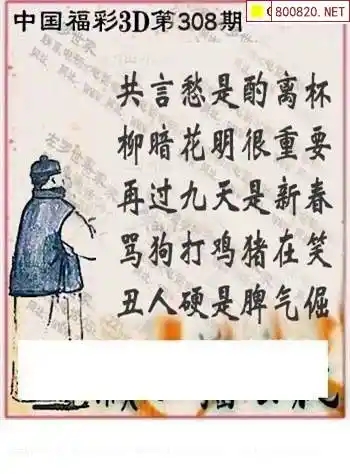 中国福彩3D第308期
800820.NET
共言愁是酌离杯
柳暗花明很重要
再过九天是新春
骂狗打鸡猪在笑
丑人硬是脾气倔